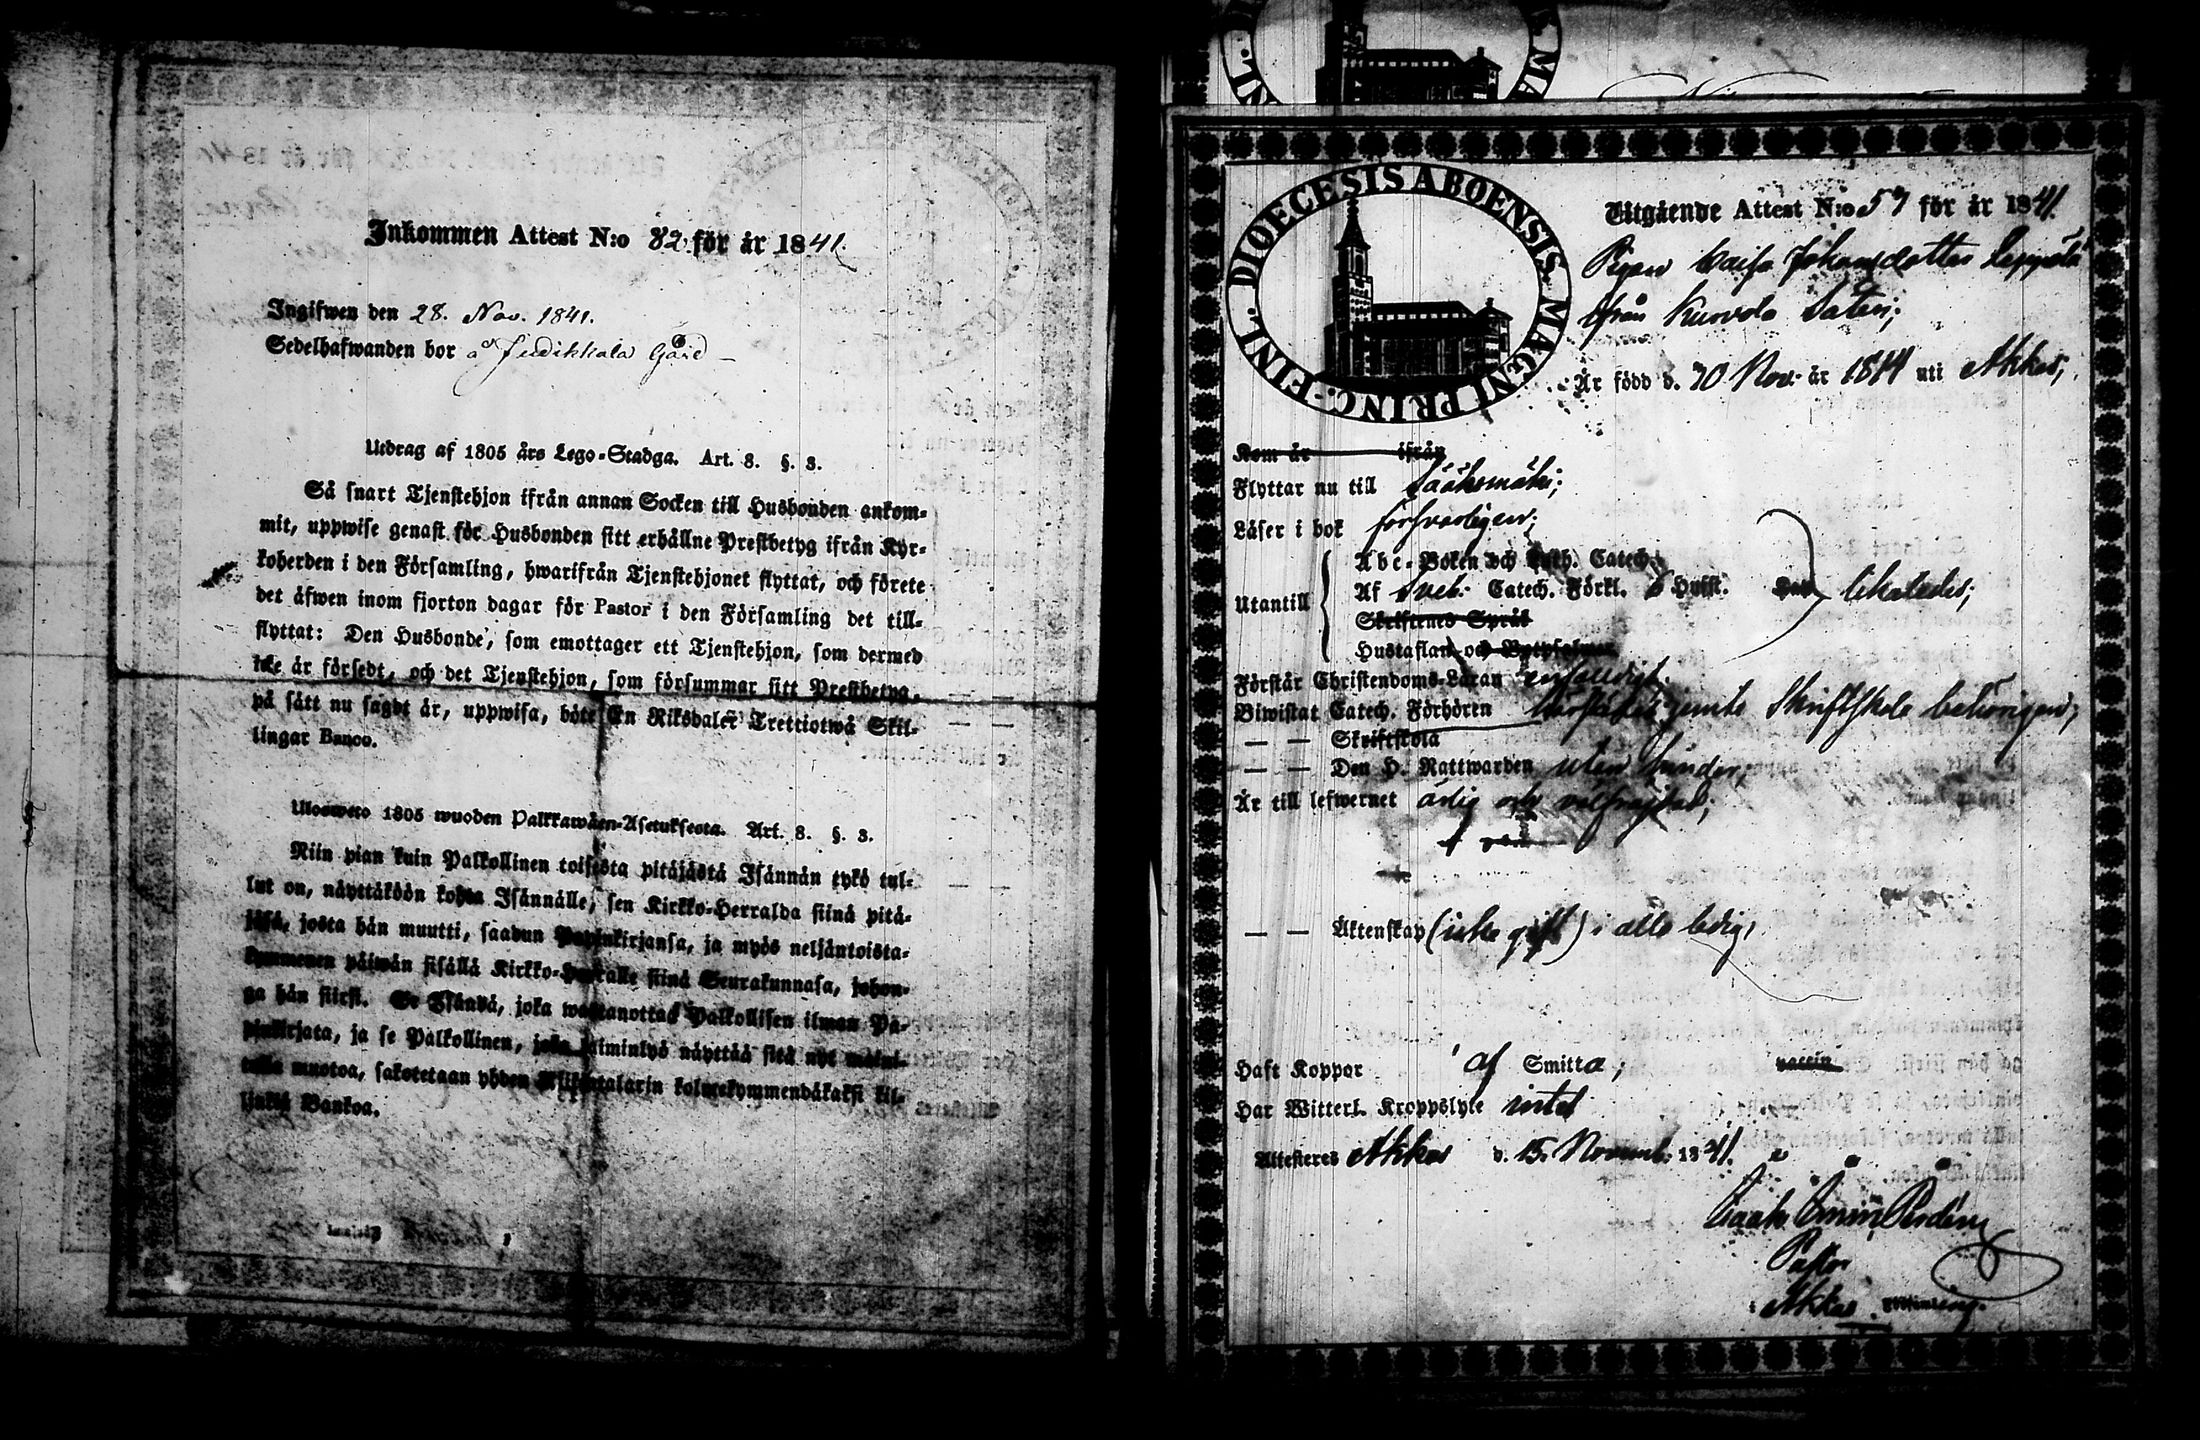 Inkommen Attest N:o 82. för år 1841.
Ingifwen den 28. Nov. 1841.
Sedelhafwanden bor å Jutikkala Gård
Utdrag af 1805 års Lego-Stadga. Art. 8. §. 3.
Så snart Tjenstehjon ifrån annan Socken till Husbonden ankom-
mit, uppwise genast för Husbonden sitt erhållne Prestbetyg ifrån Kyr-
koherden i den Församling, hwarifrån Tjenstehjonet flyttat, och förete
det äfwen inom fjorton dagar för Pastor i den Församling det till-
flyttat: Den Husbonde, som emottager ett Tjenstehjon, som dermed
icke är försedt, och det Tjenstehjon, som försummar sitt Prestbetyg,
på sätt nu sagdt är, uppwisa, böte En Riksdaler Trettiotwå Skil-
lingar Banco.
Ulosweto 1805 wuoden Palkkawäen-Asetuksesta. Art. 8. §. 3.
Niin pian kuin Palkollinen toisesta pitäjästä Isännän tykö tul-
lut on, näyttäköön kohta Isännälle, sen Kirkko-Herralda siinä pitä-
jäsä, josta hän muutti, saadun Papinkirjansa, ja myös neljäntoista-
kymmenen päiwän sisällä Kirkko-Herralle siinä Seurakunnasa, johon-
ga hän siirsi. Se Isändä, joka wastanottaa Palkollisen ilman Pa-
pinkirjata, ja se Palkollinen, joka laiminlyö näyttää sitä nyt maini-
tulla muotoa, sakotetaan yhden Riksitalarin kolmekymmendäkaksi kil-
lingiä Bankoa.
DIOECESIS ABOENSIS MAGNI PRINC. FINL.
Utgående Attest N:o 57 för år 1841.
Pigan Caisa Johansdotter Leppälä
ifrån Kurvola Säteri;
Är född d. 30 Nov. år 1814 uti Akkas;
Kom år ifrån
Flyttar nu till Sääksmäki;
Läser i bok försvarligen;
Utantill
Abc-Boken och Luth. Catech.
Af Sveb. Catech. Förkl. 6 Hufst. likaledes;
Skriftenes Språk
Hustaflan och Botpsalmer
Förstår Christendoms-Läran enfaldigt.
Biwistat Catech. Förhören jemte Skriftskola behörigen;
— — Skriftskola
— — Den H. Nattwarden uten hinder;
Är till lefwernet ärlig och välfräjdad;
— — Äktenskap (icke gift) i allo ledig,
Haft Koppor af Smitta; vaccin
Har Witterl. Kroppslyte intet
Attesteras Akkas d. 15 Novemb. 1841.
Pastor
i Akkas Församling.